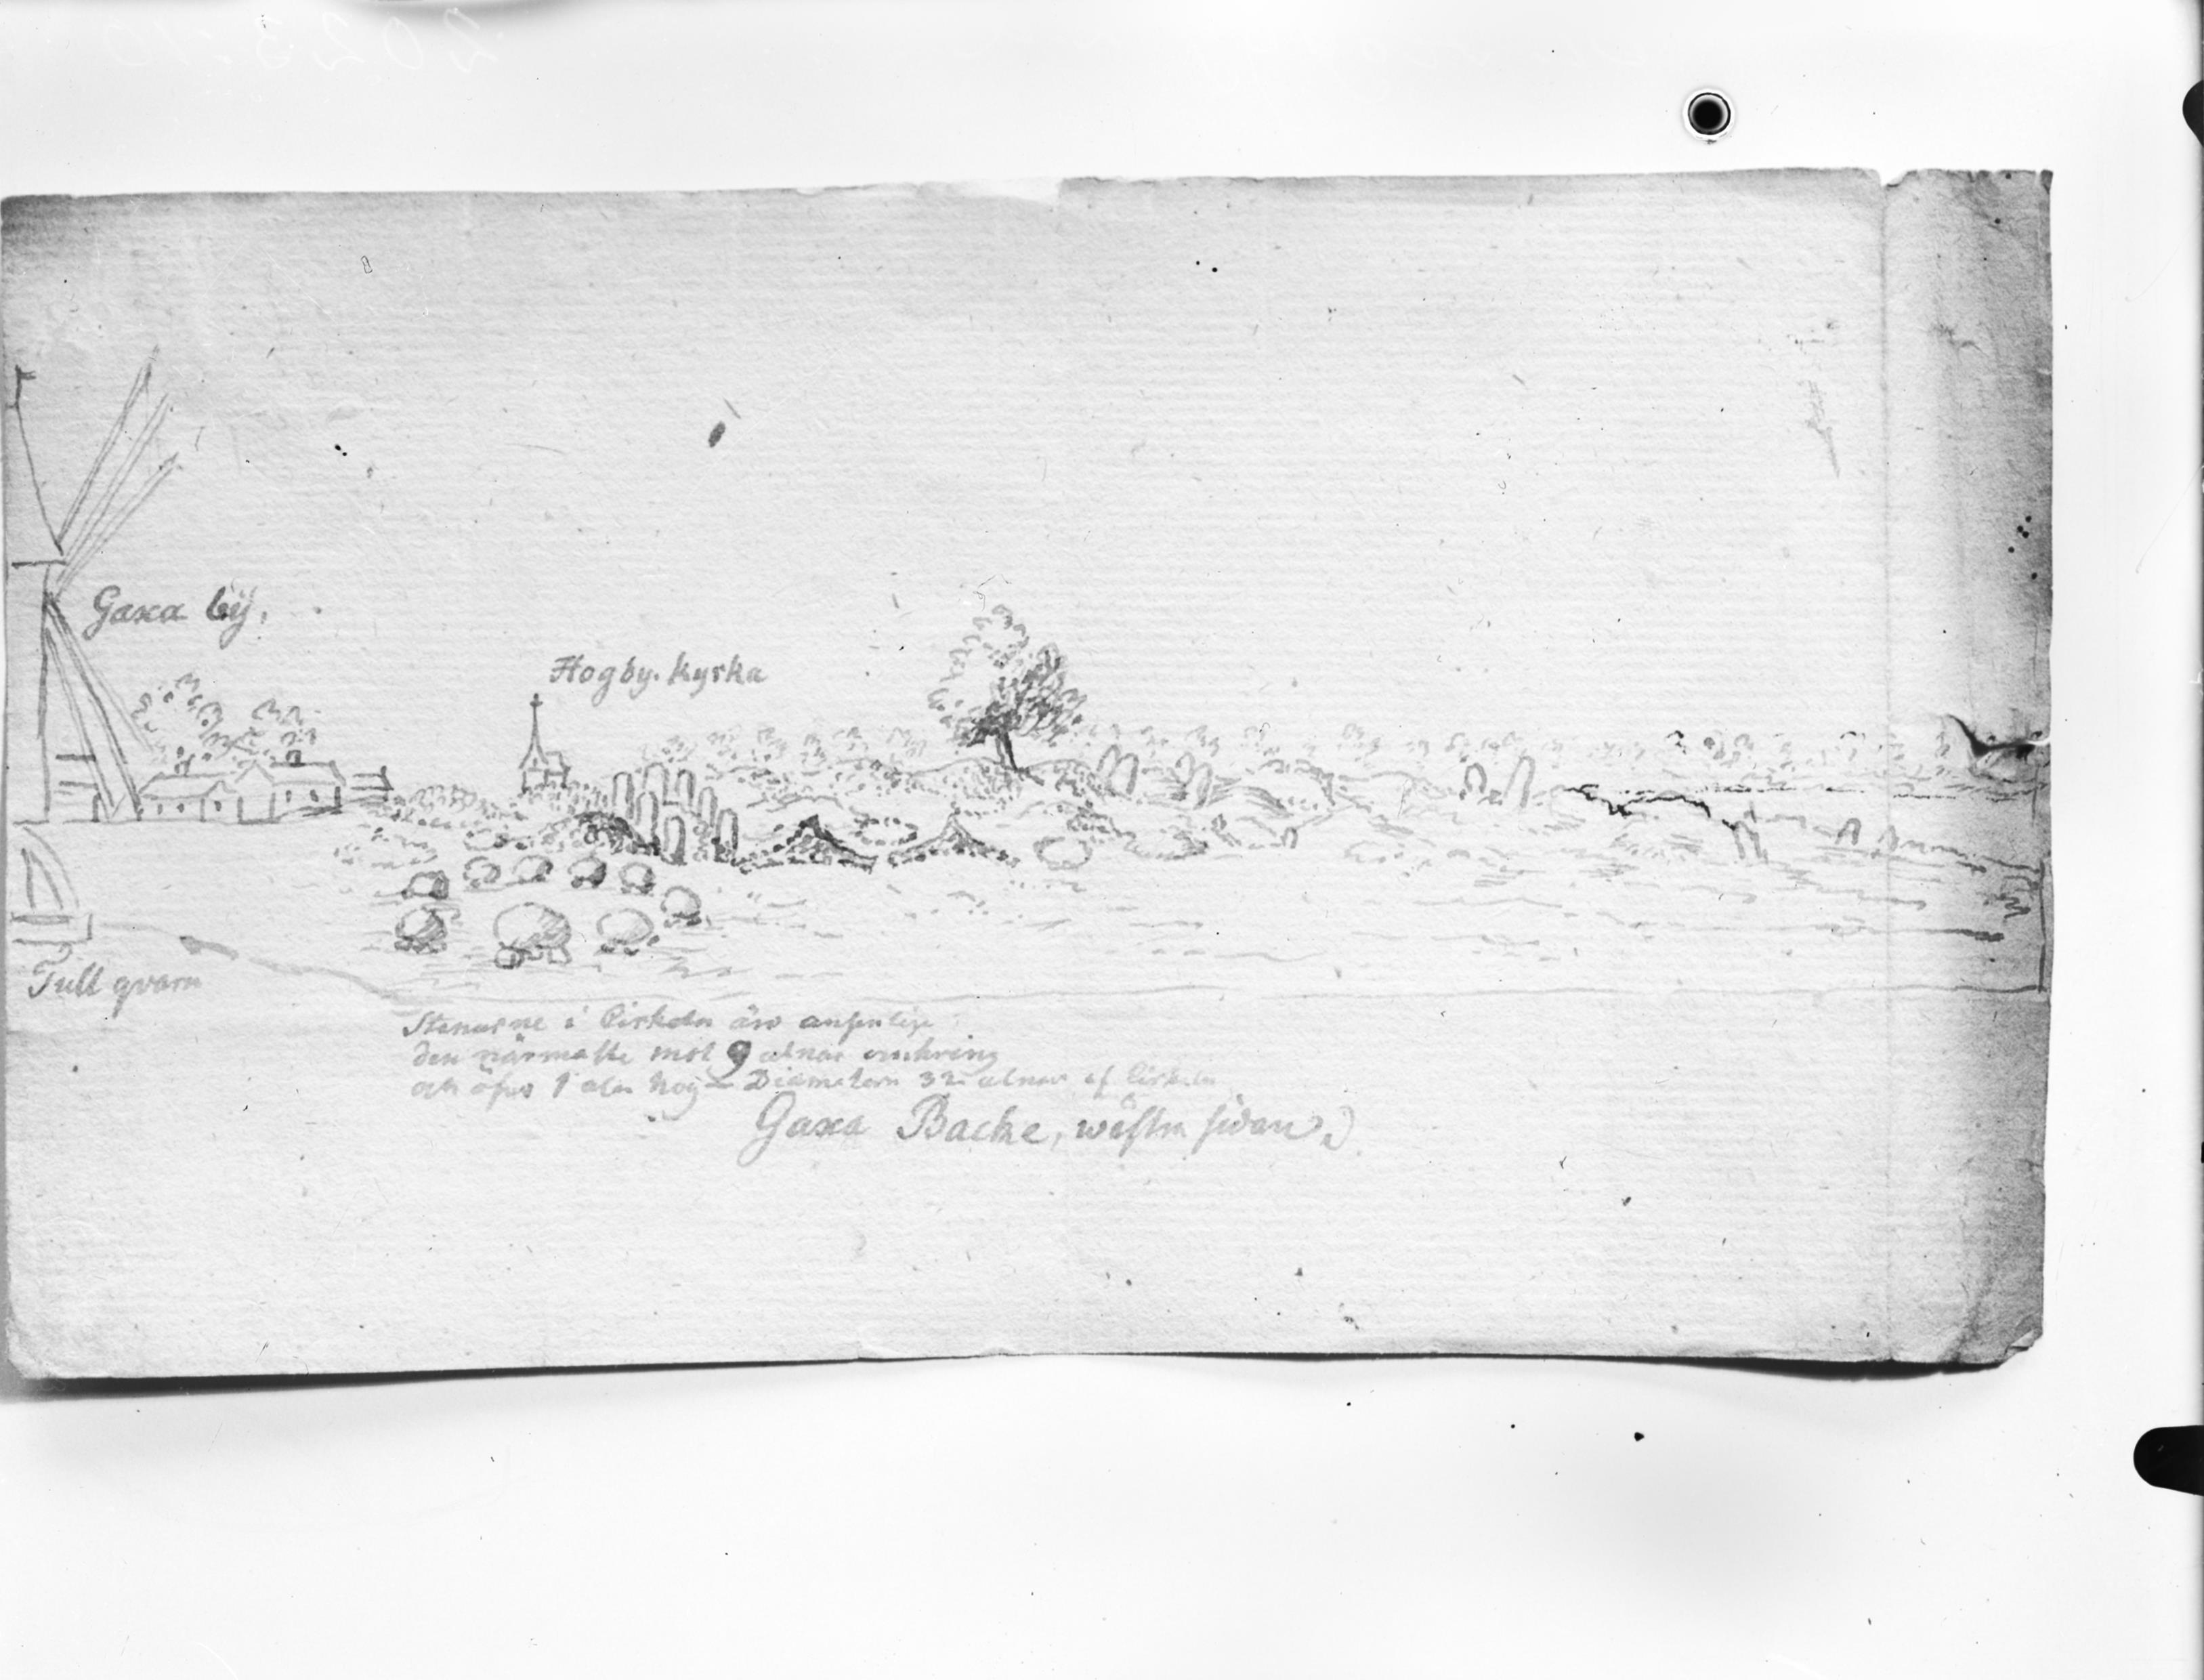 Gaxa bÿ.
Hogby. kyrka
Tull qvarn
Stenarne i Cirkeln äro ansenlige
den närmaste mot 9 alnar omkring
och öfver 1 aln hög – Diametern 32 alnar af Cirkeln
Gaxa Backe, wästra sidan.